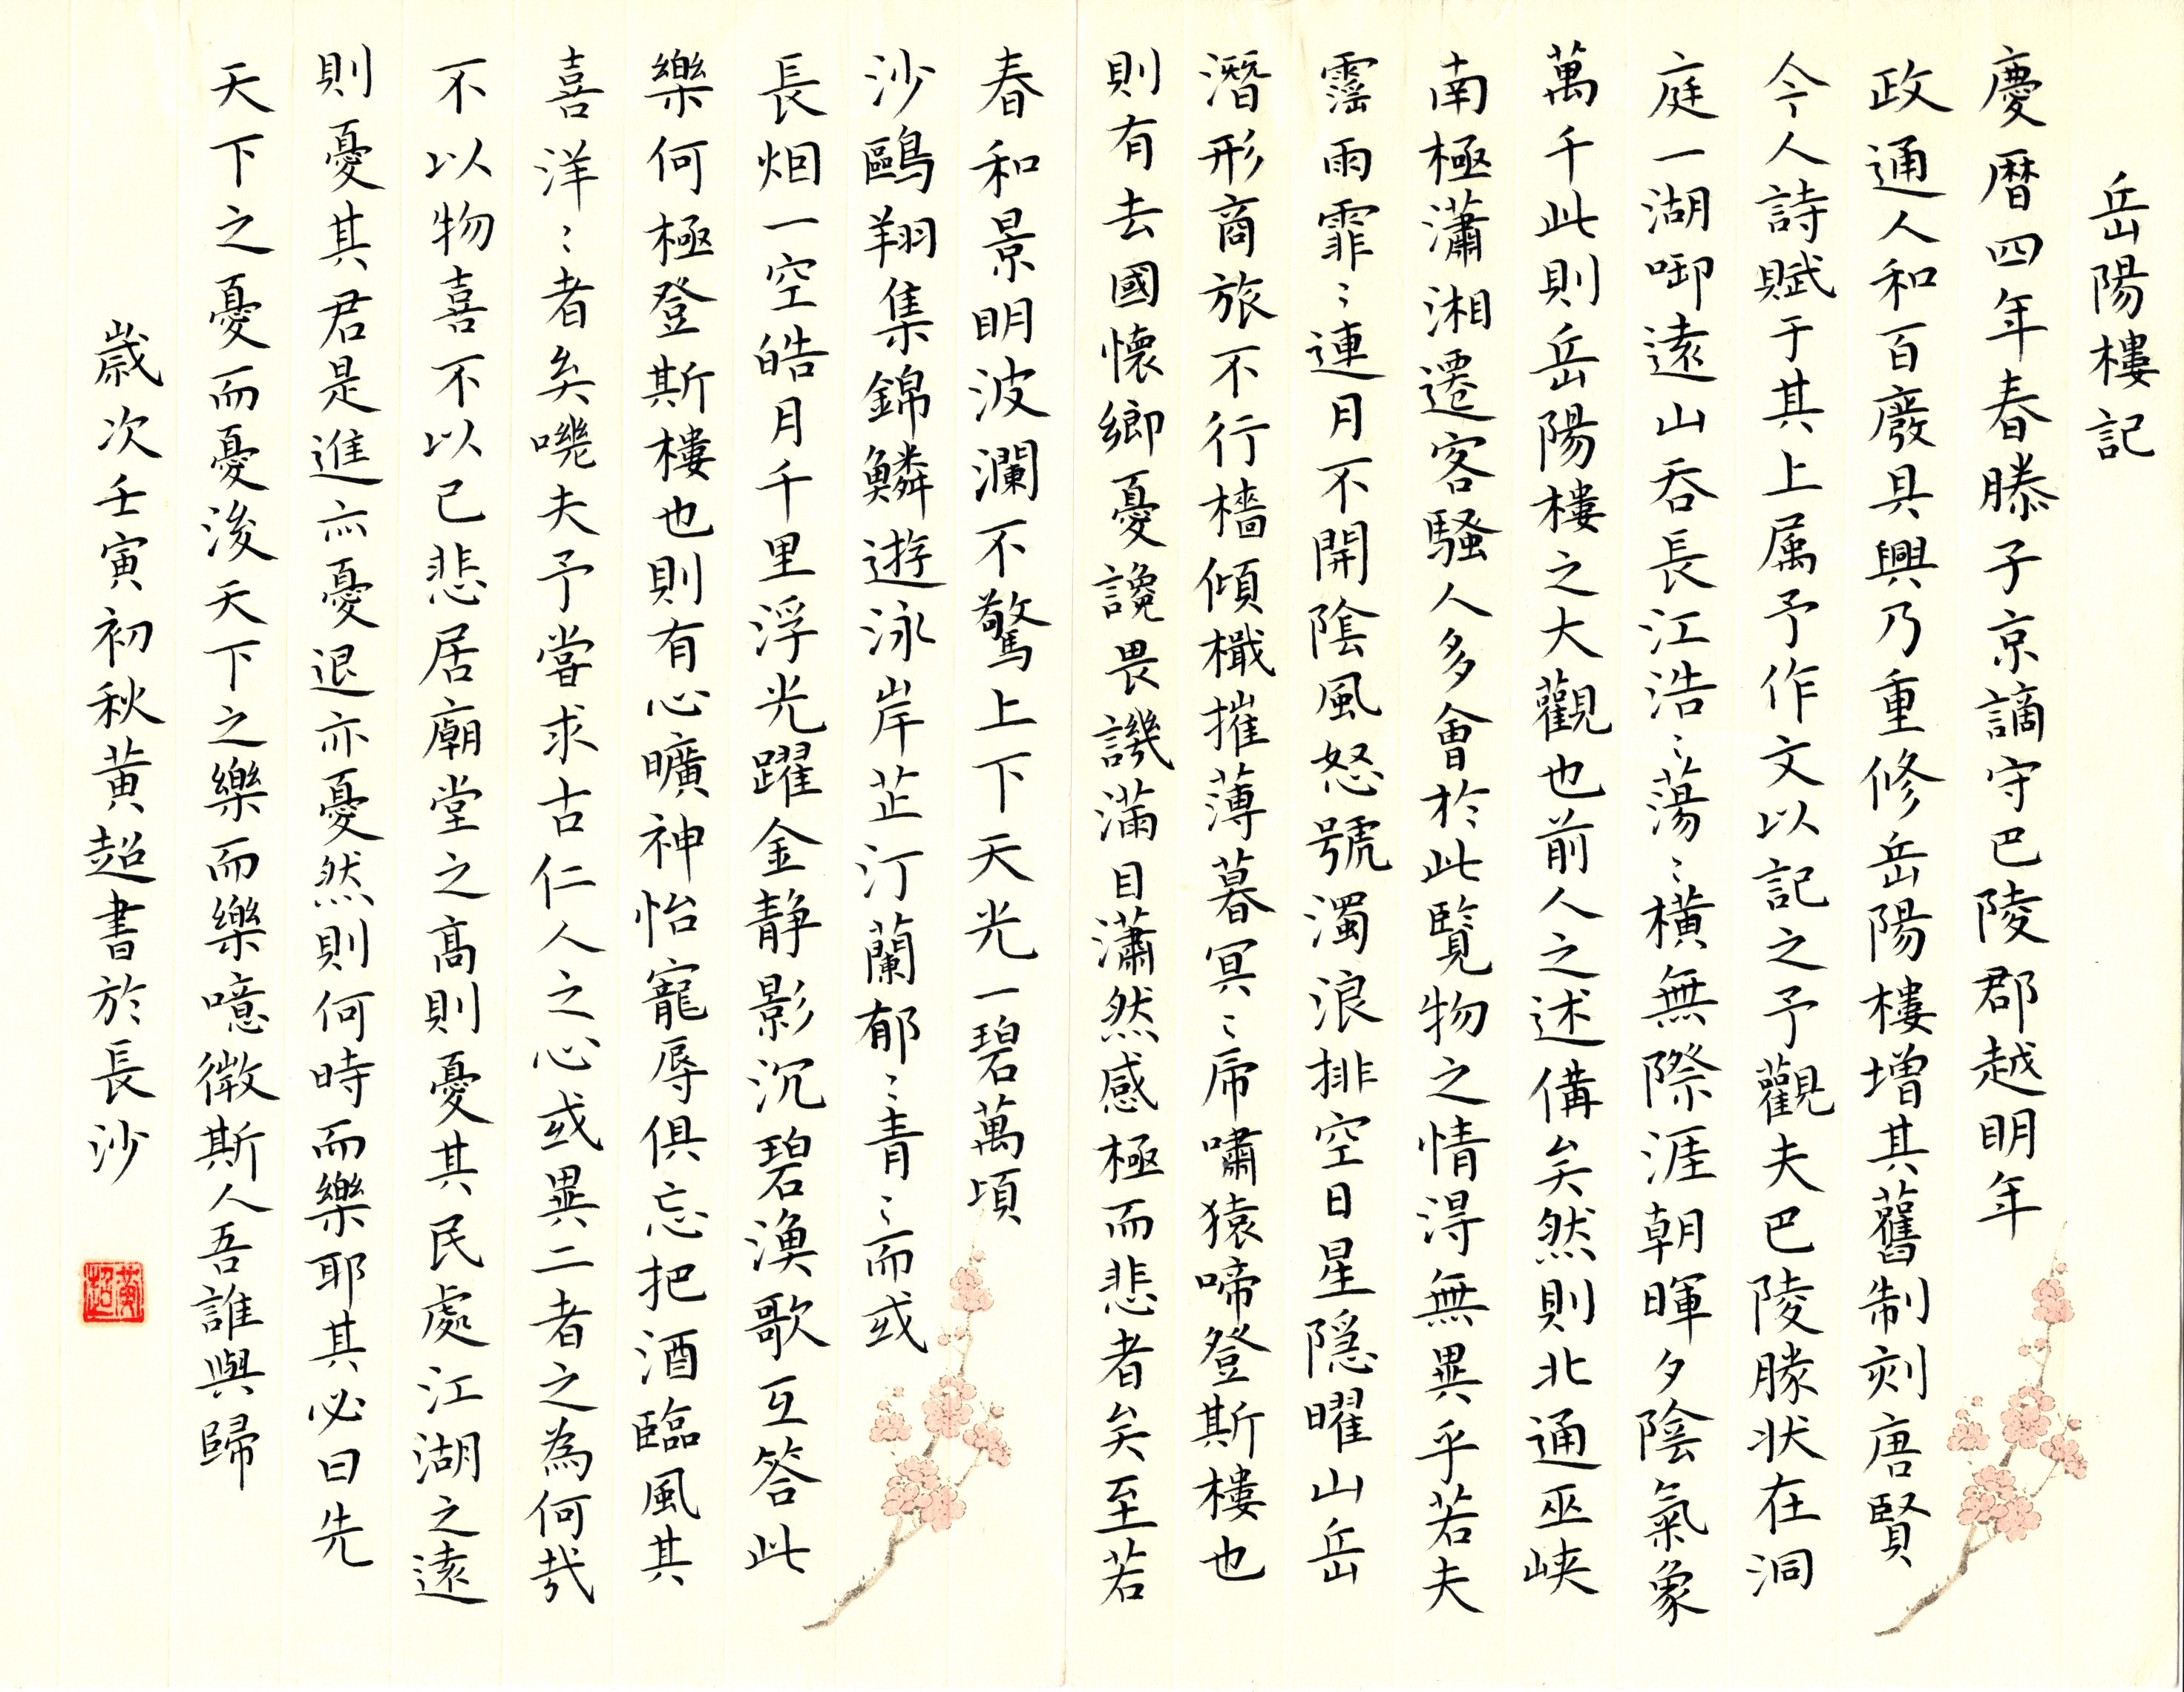 岳陽樓記
慶曆四年春滕子京謫守巴陵郡越明年
政通人和百廢具興乃重修岳陽樓增其舊制刻唐賢
今人詩賦于其上属予作文以記之予觀夫巴陵勝状在洞
庭一湖啣遠山吞長江浩〻蕩〻橫無際涯朝暉夕陰氣象
萬千此則岳陽樓之大觀也前人之述俻矣然則北通巫峡
南極瀟湘遷客騷人多會於此覧物之情淂無異乎若夫
霪雨霏〻連月不開陰風怒號濁浪排空日星隠曜山岳
潛形商旅不行檣傾檝摧薄暮冥〻虎嘯猿啼登斯樓也
則有去國懷鄉憂讒畏譏滿目瀟然感極而悲者矣至若
春和景明波瀾不驚上下天光一碧萬頃
沙鷗翔集錦鱗遊泳岸芷汀蘭郁〻青〻而或
長烟一空皓月千里浮光躍金静影沉碧漁歌互答此
樂何極登斯樓也則有心曠神怡寵辱俱忘把酒臨風其
喜洋〻者矣嘰夫予嘗求古仁人之心或異二者之為何㢤
不以物喜不以己悲居廟堂之髙則憂其民處江湖之遠
則憂其君是進亦憂退亦憂然則何時而樂耶其必曰先
天下之憂而憂後天下之樂而樂噫微斯人吾誰與歸
歲次壬寅初秋黄超書於長沙
黄超